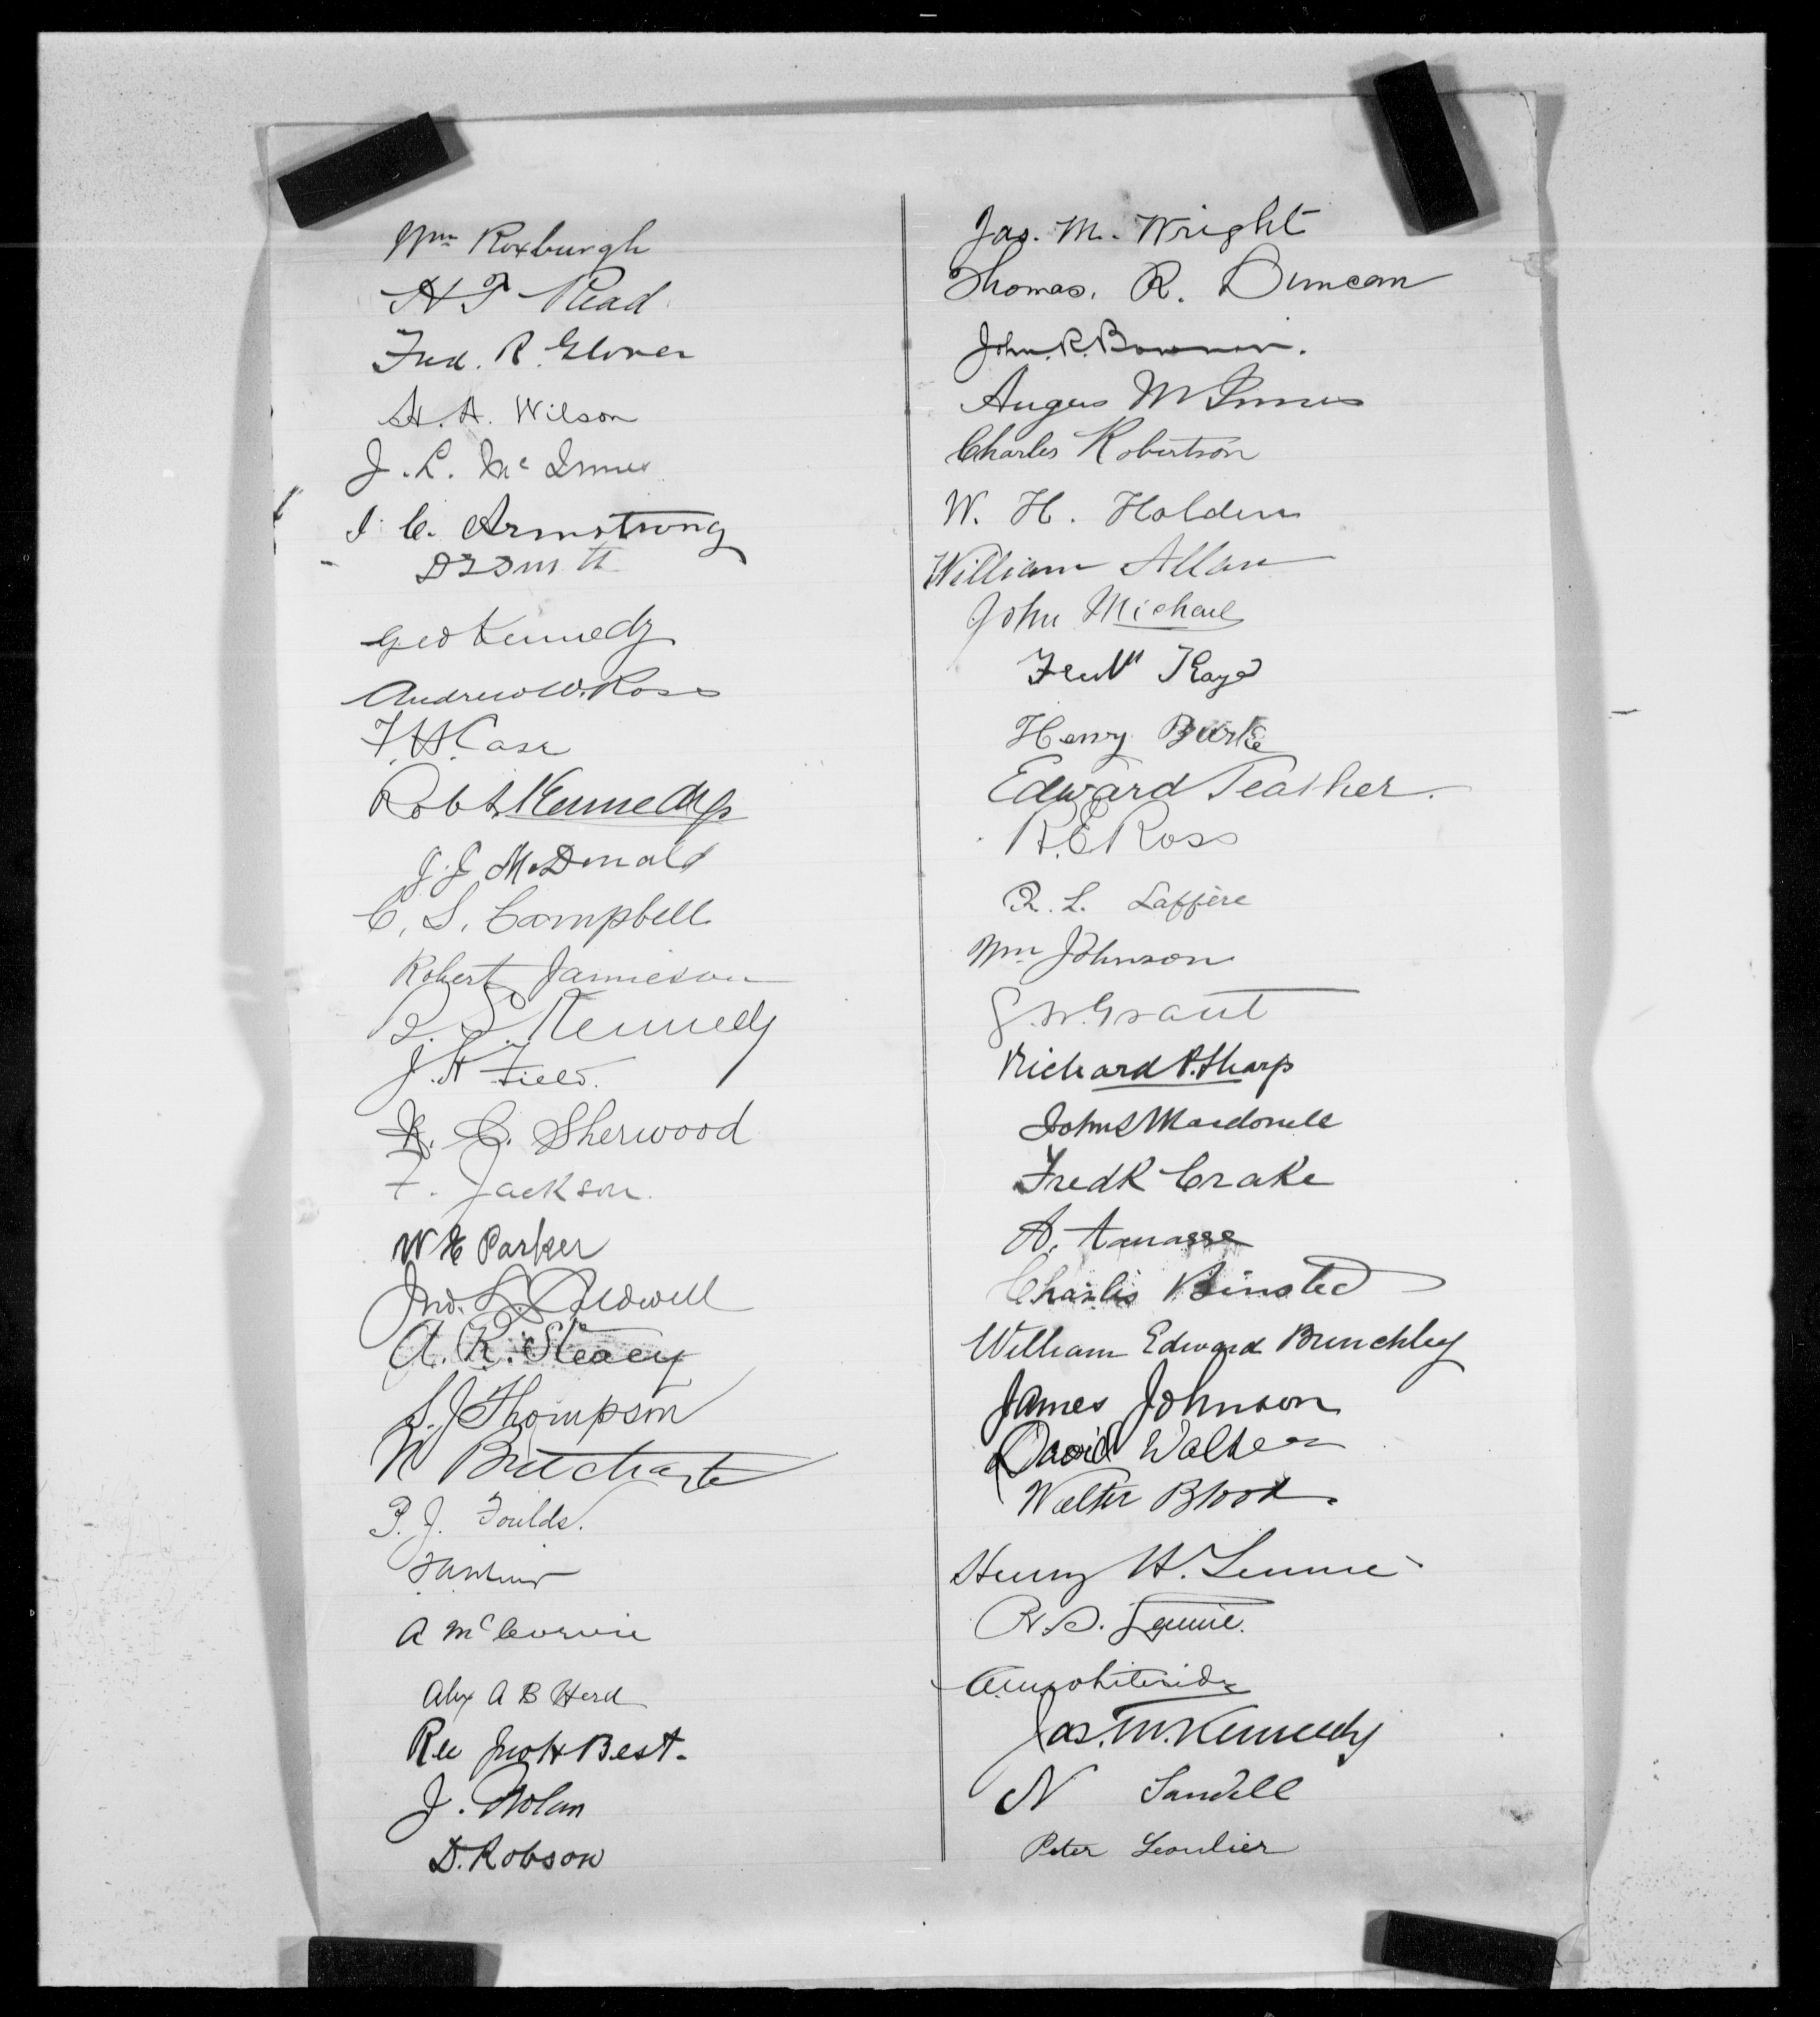 Wm Roxburgh
H T Read
Fred. R. Glover
H. A. Wilson
J. L. McInnes
J. C. Armstrong
Geo Kennedy
Andrew W. Ross
F. H. Case
Robt Kennedy
J. J. McDonald
C. S. Campbell
Robert Jamieson
R. S. Kennedy
J. H Field.
H. C. Sherwood
F. Jackson.
W H Parker
Jno. S.
A. R. Steacy
S. J Thompson
N Butchart
P. J. Foulds.
A Mc
Alex A B Herd
Jno H Best.
J. Nolan
D. Robson
Jas. M. Wright
Thomas. R. Duncan
John. R. Bowman.
Angus McInnes
Charles Robertson
W. H. Holden
William Allan
John Michael
Kaye
Henry Burke
Edward Teather.
R. E Ross
R. L. Laffère
Wm Johnson
G. W. Grant
Richard P. Sharp
John S Macdonell
Fredk Crake
A.
Charles Binsted
William Edward Brenchley
James Johnson
David Walker
Walter Blood.
Henry H. Lennie
R. S. Lennie.
A. Whiteside
Jas. M. Kennedy
N Sandell
Peter